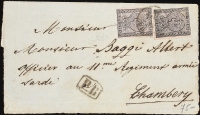 Monsieur
Monsieur Baggi Albert
officier au 11me Regiment armée
Sarde
P.D.
Chambery
75-